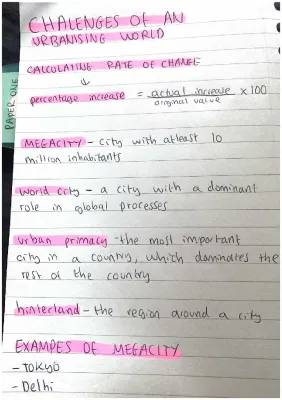 CHALENGES OF AN
URBANISING WORLD
PAPER ONE
CALCULATING RATE OF CHANGE
↓
percentage increase = actual increase × 100
original value
MEGACITY - city with atleast 10
million inhabitants
world city - a city with a dominant
role in global processes
urban primacy - the most important
city in a country, which dominates the
rest of the country
hinterland - the region around a city
EXAMPES OF MEGACITY
- TOKYO
- Delhi